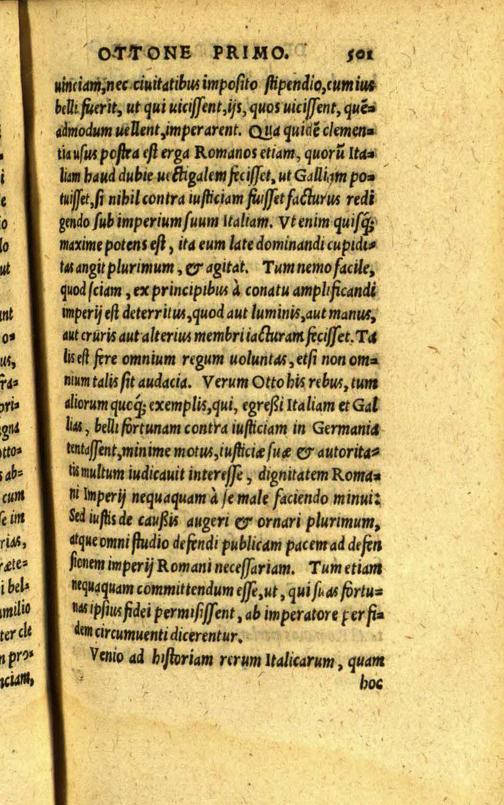 OTTONE PRIMO. 501
uinciam, nec ciuitatibus imposito stipendio, cum ius
belli fuerit, ut qui uicissent, ijs, quos uicissent, quē=
admodum uellent, imperarent. Qua quidē clemen=
tia usus postea est erga Romanos etiam, quorū Ita=
liam haud dubie uectigalem fecisset, ut Galliam po=
tuisset, si nihil contra iusticiam fuisset facturus redi
gendo sub imperium suum Italiam. Vt enim quisq;
maxime potens est, ita eum late dominandi cupidi=
tas angit plurimum, & agitat. Tum nemo facile,
quod sciam, ex principibus à conatu amplificandi
imperij est deterritus, quod aut luminis, aut manus,
aut cruris aut alterius membri iacturam fecisset. Ta
lis est fere omnium regum uoluntas, etsi non om=
nium talis sit audacia. Verum Otto his rebus, tum
aliorum quoq; exemplis, qui, egreßi Italiam et Gal
lias, belli fortunam contra iusticiam in Germania
tentassent, minime motus, iusticiæ suæ & autorita=
tis multum iudicauit interesse, dignitatem Roma=
ni Imperij nequaquam à se male faciendo minui:
Sed iustis de caußis augeri & ornari plurimum,
atque omni studio defendi publicam pacem ad defen
sionem imperij Romani necessariam. Tum etiam
nequaquam committendum esse, ut, qui suas fortu=
nas ipsius fidei permisissent, ab imperatore per fi=
dem circumuenti dicerentur.
Venio ad historiam rerum Italicarum, quam
hoc